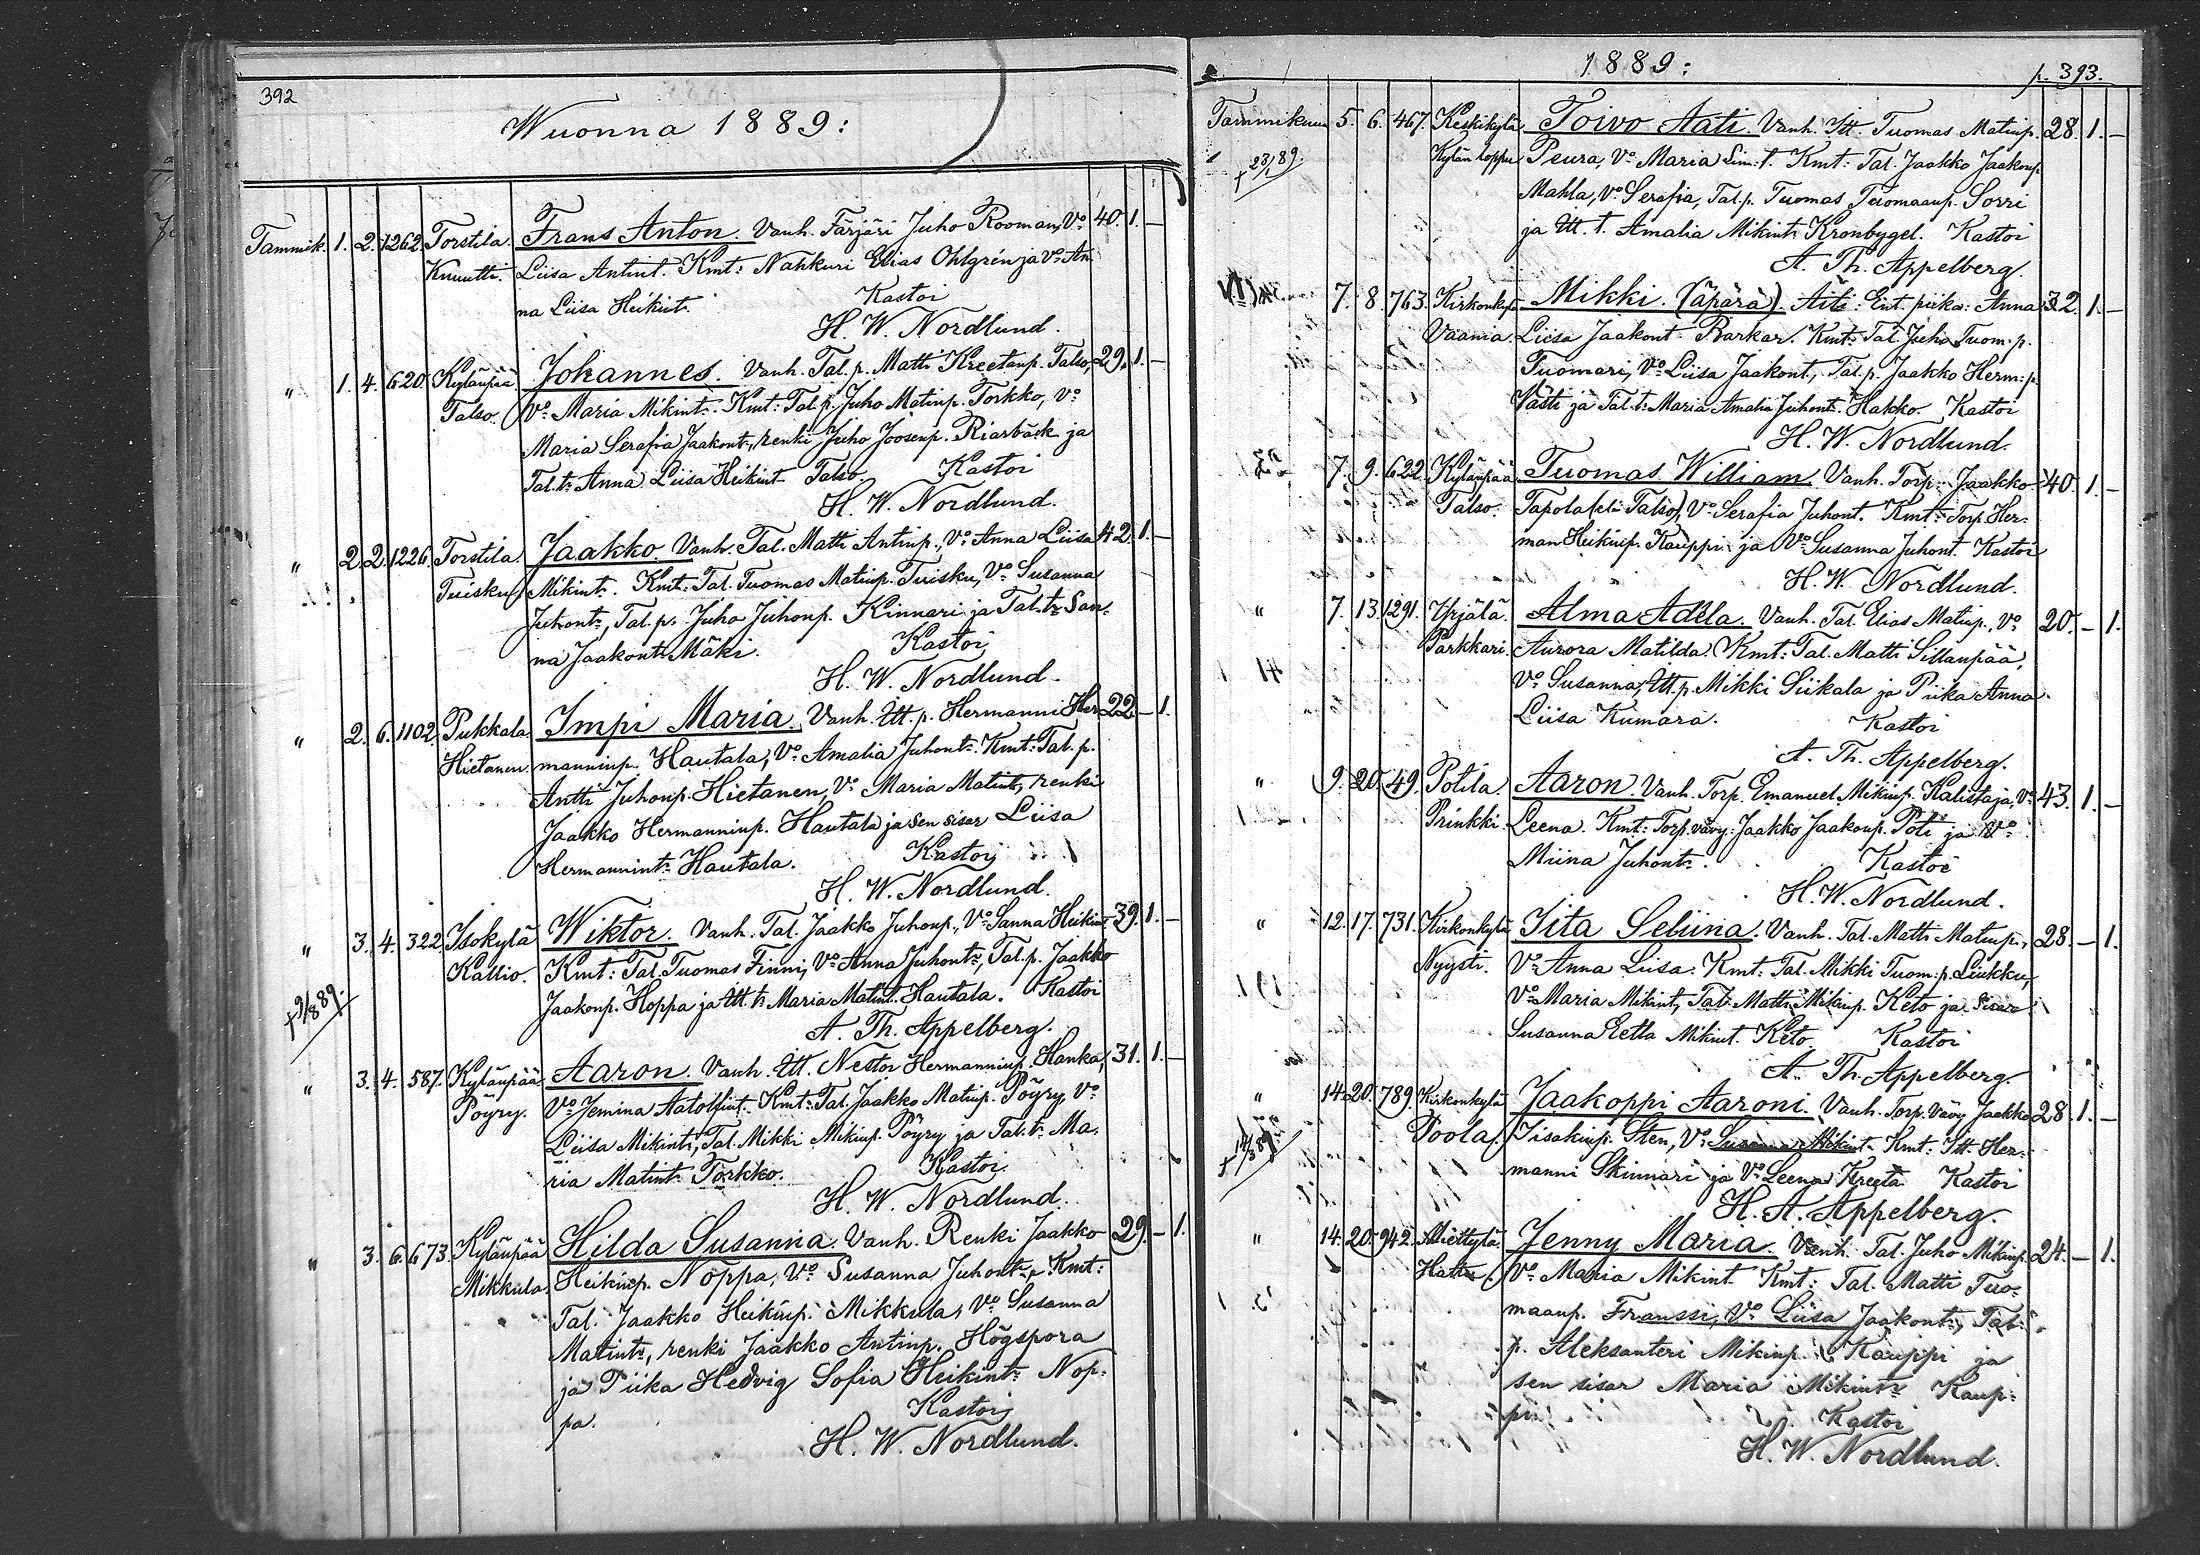 392
Wuonna 1889:
Tammik. 1. 2. 1262. Torstila. Frans Anton. Vanh. Färjäri Juho Rooman, Vo 40. 1. –
Knuutti. Liisa Antint. Kmt: Nahkuri Elias Ohlgrén ja Vo An-
na Liisa Heikint. Kastoi
H. W. Nordlund.
" 1. 4. 620. Kylänpää Johannes. Vanh. Tal. p. Matti Kreetanp. Talso, 29. 1. –
Talso. Vo Maria Mikint. Kmt: Tal. p. Juho Matinp. Torkko, Vo
Maria Serafia Jaakont., renki Juho Joosenp. Riarbäck ja
Tal. t. Anna Liisa Heikint. Talso. Kastoi
H. W. Nordlund.
" 2. 2. 1226. Torstila. Jaakko. Vanh. Tal. Matti Antinp., Vo Anna Liisa 42. 1. –
Tuisku. Mikint. Kmt: Tal. Tuomas Matinp. Tuisku, Vo Susanna
Juhont., Tal. p. Juho Juhonp. Kinnari ja Tal. t. San-
na Jaakont. Mäki. Kastoi
H. W. Nordlund.
" 2. 6. 1102. Pukkala. Impi Maria. Vanh. Itt. p. Hermanni Her- 22. – 1.
Hietanen. manninp. Hautala, Vo Amalia Juhont. Kmt: Tal. p.
Antti Juhonp. Hietanen, Vo Maria Matint., renki
Jaakko Hermanninp. Hautala ja sen sisar Liisa
Hermannint. Hautala. Kastoi
H. W. Nordlund.
" 3. 4. 322. Isokylä Wiktor. Vanh. Tal. Jaakko Juhonp., Vo Sanna Heikint. 39. 1. –
Kallio. Kmt: Tal. Tuomas Finni, Vo Anna Juhont., Tal. p. Jaakko
+ 9/8 89. Jaakonp. Hoppa ja Itt. t. Maria Matint. Hautala. Kastoi
A. Th. Appelberg.
" 3. 4. 587. Kylänpää Aaron. Vanh. Itt. Nestor Hermanninp. Hanka, 31. 1. –
Pöyry. Vo Jemina Aatolfint. Kmt: Tal. Jaakko Matinp. Pöyry Vo
Liisa Mikint., Tal. Mikki Mikinp. Pöyry ja Tal. t. Ma-
ria Matint. Torkko. Kastoi
H. W. Nordlund.
" 3. 6. 673. Kylänpää Hilda Susanna. Vanh. Renki Jaakko 29. – 1.
Mikkula. Heikinp. Noppa, Vo Susanna Juhont. Kmt:
Tal. Jaakko Heikinp. Mikkula, Vo Susanna
Matint., renki Jaakko Antinp. Högspora
ja Piika Hedvig Sofia Heikint. Nop-
pa. Kastoi
H. W. Nordlund.
1889: p. 393.
Tammikuun 5. 6. 467. Keskikylä Toivo Aati. Vanh. Itt. Tuomas Matinp. 28. 1. –
+ 23/1 89. Kylän loppu Peura, Vo Maria Sim. t. Kmt: Tal. Jaakko Jaakonp.
Mahla, Vo Serafia, Tal. p. Tuomas Tuomaanp. Sorri
ja Itt. t. Amalia Mikint. Kronbygel. Kastoi
A. Th. Appelberg.
7. 8. 763. Kirkonkyl. Mikki. (äpärä). Äiti: Ent. piika: Anna 32. 1. –
Vaania. Liisa Jaakont. Barkar. Kmt: Tal. Juho Tuom. p.
Tuomari, Vo Liisa Jaakont., Tal. p. Jaakko Herm: p.
Västi ja Tal. t. Maria Amalia Juhont. Hakko. Kastoi
H. W. Nordlund.
7. 9. 622. Kylänpää Tuomas William. Vanh. Torp. Jaakko 40. 1. –
Talso. Tapola (eli Talso), Vo Serafia Juhont. Kmt: Torp. Her-
man Heikinp. Kauppi ja Vo Susanna Juhont. Kastoi
H. W. Nordlund.
" 7. 13. 1291. Yrjälä. Alma Adéla. Vanh. Tal. Elias Matinp., Vo 20. – 1.
Parkkari. Aurora Matilda. Kmt: Tal. Matti Sillanpää,
Vo Susanna, Itt. p. Mikki Siikala ja Piika Anna
Liisa Kumara. Kastoi
A. Th. Appelberg.
" 9. 20. 49. Potila. Aaron. Vanh. Torp. Emanuel Mikinp. Kalistaja, Vo 43. 1. –
Prinkki. Leena. Kmt: Torp. vävy: Jaakko Jaakonp. Poti ja Vo
Miina Juhont. Kastoi
H. W. Nordlund.
" 12. 17. 731. Kirkonkylä Iita Seliina. Vanh. Tal. Matti Matinp., 28. – 1.
Nyysti. Vo Anna Liisa. Kmt: Tal. Mikki Tuom: p. Liukku,
Vo Maria Mikint., Tal. Matti Mikinp. Keto ja sisar
Susanna Eetla Mikint. Keto. Kastoi
A. Th. Appelberg.
" 14. 20. 789. Kirkonkylä Jaakoppi Aaroni. Vanh. Torp. Vävy Jaakko 28. 1. –
+ 14/3 89. Poola. Iisakinp. Sten, Vo Susanna Mikint. Kmt: Itt. Her-
manni Skinnari ja Vo Leena Kreeta. Kastoi
H. A. Appelberg.
" 14. 20. 942. Miettylä. Jenny Maria. Vanh. Tal. Juho Mikinp. 24. – 1.
Hatta. Vo Maria Mikint. Kmt: Tal. Matti Tuo-
maanp. Franssi, Vo Liisa Jaakont., Tal.
p. Aleksanteri Mikinp. Kauppi ja
sen sisar Maria Mikint. Kaup-
pi. Kastoi
H. W. Nordlund.